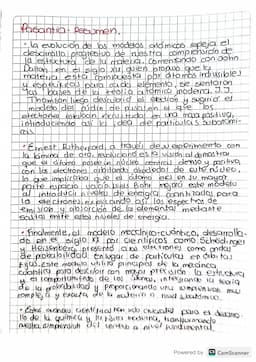 Pasantía - Resumen.
• La evolución de los modelos atómicos refleja el
desarrollo progresivo de nuestra comprensión de
la estructura de la materia, comenzando con John
Dalton en el siglo XIX, quien propuso que la
materia está compuesta por átomos indivisibles
y específicos para cada elemento, se sentaron
las bases de la teoría atómica moderna. J.J.
Thomson luego descubrió el electrón y sugirió el
modelo del pudín de pasas en el que los
electrones estaban incrustados en una masa positiva,
introduciendo así la idea de partículas subatómi-
cas.
• Ernest Rutherford a través de su experimento con
la lámina de oro revolucionó esta visión al demostrar
que el átomo posee un núcleo central denso y positivo,
con los electrones orbitando alrededor de este núcleo,
lo que implicaba que el átomo era en su mayor
parte espacio vacío. Niels Bohr mejoró este modelo
al introducir niveles de energía cuantizados para
los electrones, explicando así los espectros de
emisión y absorción de los elementos mediante
saltos entre estos niveles de energía.
• Finalmente, el modelo mecánico-cuántico, desarrolla-
do en el siglo XX por científicos como Schrödinger
y Heisenberg, presentó a los electrones como ondas
de probabilidad en lugar de partículas en órbitas
fijas. Este modelo utiliza principios de la mecánica
cuántica para describir con mayor precisión la estructura
y el comportamiento de los átomos, integrando la teoría
de la probabilidad y proporcionando una comprensión más
compleja y exacta de la materia a nivel atómico.
• Estos avances científicos han sido cruciales para el desarro-
llo de la química y la física moderna, transformando
nuestra comprensión del mundo a nivel fundamental.
Powered by CS CamScanner